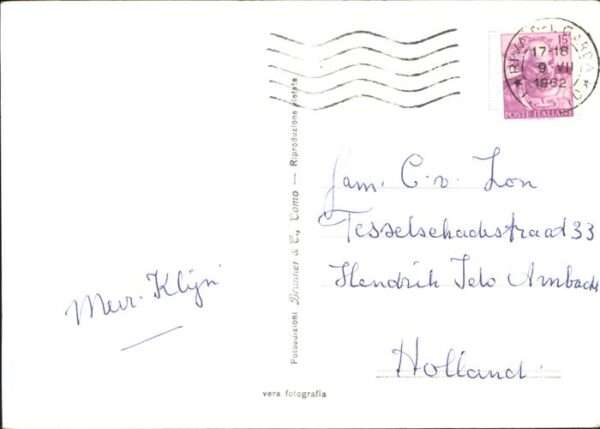 15
RIVA DEL GARDA
17-18
9. VII
1962
POSTE ITALIANE
Fam. C. v. Lon
Tesselschadestraat 33
Hendrik Ido Ambach
Holland
Mevr. Klijn
Fotoedizioni Brunner & C., Como — Riproduzione vietata
vera fotografia